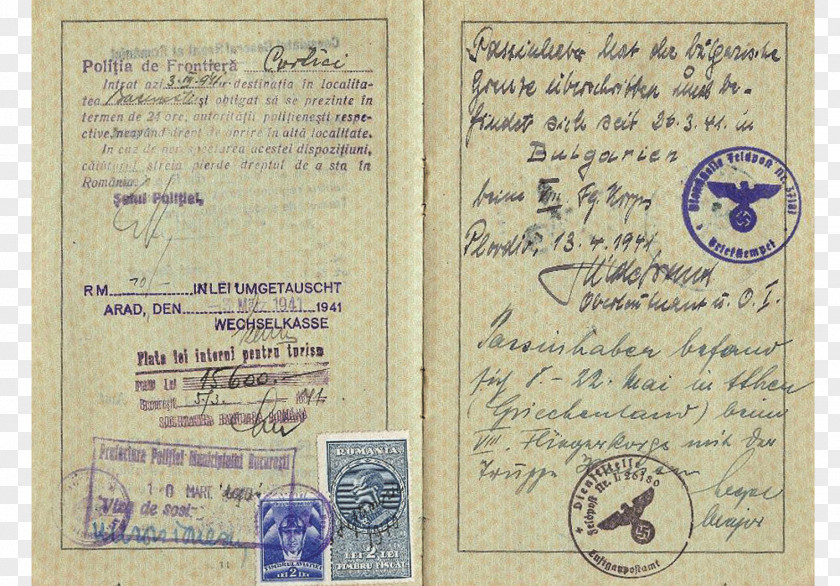 Poliția de Frontieră Curtici
Intrat azi 3.III.941 destinația in localita-
tea și obligat să se prezinte in
termen de 24 ore, autorității polițienești respec-
tive, neavând drept de oprire în altă localitate.
In caz de nerespectarea acestei dispozițiuni,
călătorul strein pierde dreptul de a sta in
România.
Șeful Poliției,
RM 70/- IN LEI UMGETAUSCHT
ARAD, DEN 3 MRZ 1941 1941
WECHSELKASSE
Plata lei interni pentru turism
Lei 15600.-
București 5/3. 1941
Prefectura Poliției Municipiului București
1 0 MART. 1941
Viza de sosi-
LEI 2 LEI
TIMBRUL AVIAȚIEI
ROMANIA
LEI 2 LEI
TIMBRU FISCAL
Passinhaber hat die bulgarische
Grenze überschritten und be-
findet sich seit 26.3.41. in
Bulgarien
beim VIII. Flg. Korps
Plovdiv, 13.4.1941
Dienststelle Feldpost Nr. 37181
Briefstempel
Hildebrand
Oberleutnant u. O. I.
Passinhaber befand
sich 8.-22. Mai in Athen
(Griechenland) beim
VIII. Fliegerkorps mit der
Truppe
Major
Dienststelle
Feldpost Nr. L 26180
Luftgaupostamt